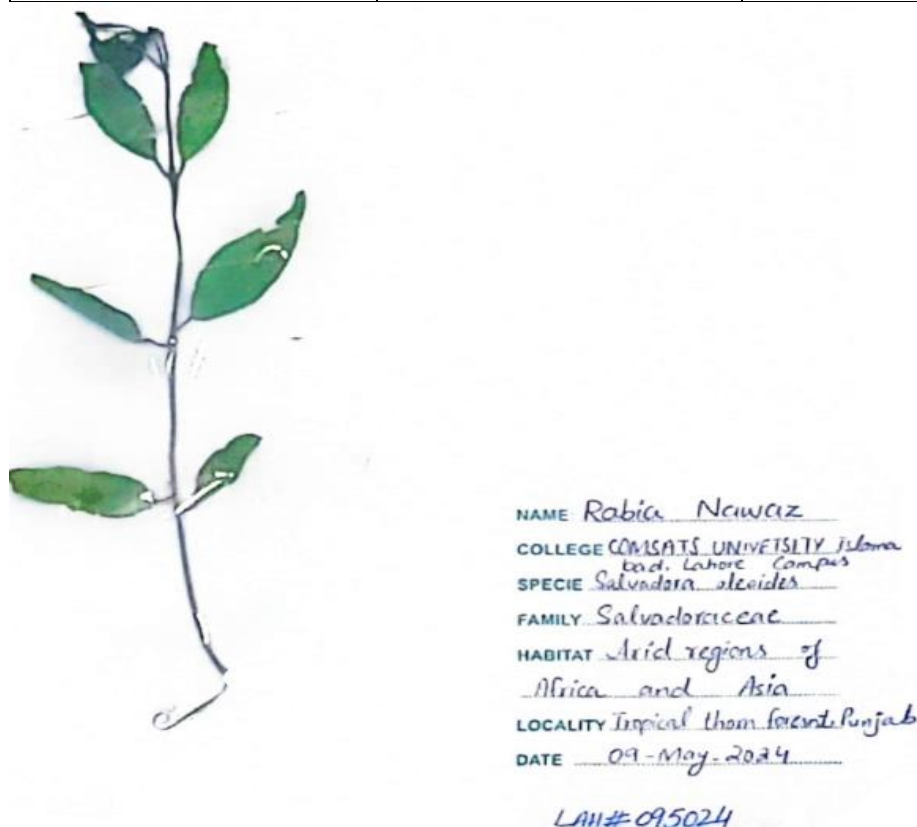 NAME Rabia Nawaz
COLLEGE COMSATS UNIVETSITY Islama
bad. Lahore Campus
SPECIE Salvadora oleoides
FAMILY Salvadoraceae
HABITAT Arid regions of
Africa and Asia
LOCALITY Tropical thorn forest Punjab
DATE 09-May-2024
LAH# 095024